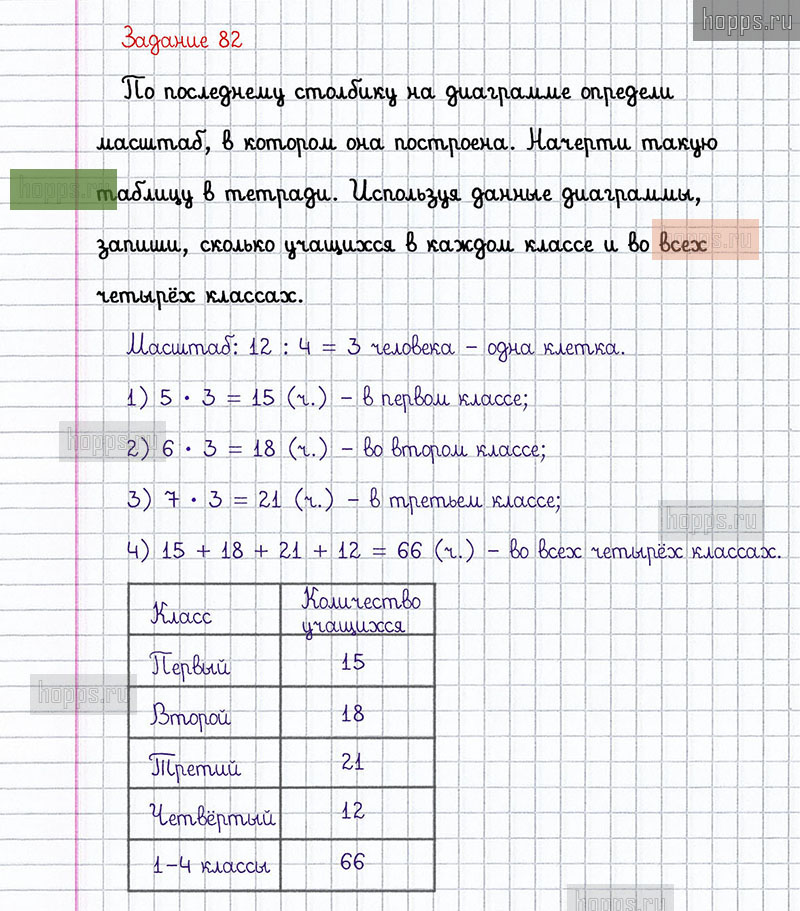 hopps.ru
Задание 82
По последнему столбику на диаграмме определи
масштаб, в котором она построена. Начерти такую
hopps.ru
таблицу в тетради. Используя данные диаграммы,
запиши, сколько учащихся в каждом классе и во всех
hopps.ru
четырёх классах.
Масштаб: 12 : 4 = 3 человека – одна клетка.
1) 5 · 3 = 15 (ч.) – в первом классе;
hopps.ru
2) 6 · 3 = 18 (ч.) – во втором классе;
3) 7 · 3 = 21 (ч.) – в третьем классе;
hopps.ru
4) 15 + 18 + 21 + 12 = 66 (ч.) – во всех четырёх классах.
Класс Количество
учащихся
Первый 15
hopps.ru
Второй 18
Третий 21
Четвёртый 12
1–4 классы 66
hopps.ru